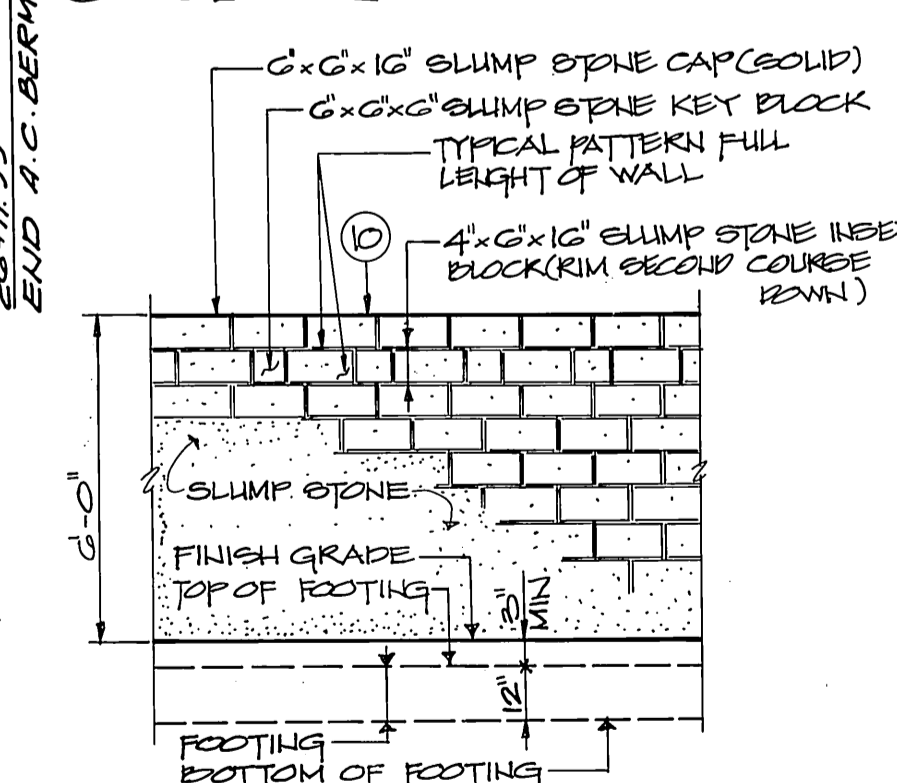 END A.C. BERM
6"x6"x16" SLUMP STONE CAP (SOLID)
6"x6"x6" SLUMP STONE KEY BLOCK
TYPICAL PATTERN FULL
LENGHT OF WALL
10
4"x6"x16" SLUMP STONE INSE
BLOCK (RIM SECOND COURSE
DOWN)
6'-0"
SLUMP STONE
FINISH GRADE
TOP OF FOOTING
3"
MIN
12"
FOOTING
BOTTOM OF FOOTING